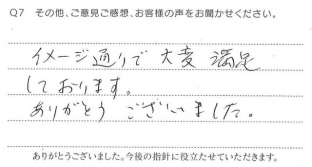 Q7 その他、ご意見ご感想、お客様の声をお聞かせください。
イメージ通りで 大変 満足
しております。
ありがとう ございました。
ありがとうございました。今後の指針に役立たせていただきます。